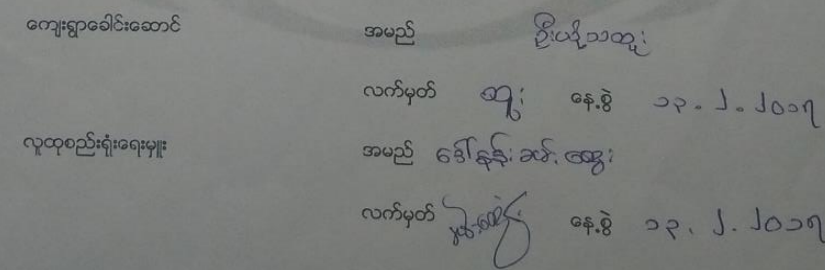 ကျေးရွာခေါင်းဆောင် အမည် ဦးပဒိုသထူး
လက်မှတ် ထူး နေ့စွဲ ၁၃.၂.၂၀၁၇
လူထုစည်းရုံးရေးမှူး အမည် ဒေါ်နန်းခမ်းထွေး
လက်မှတ် နေ့စွဲ ၁၃.၂.၂၀၁၇